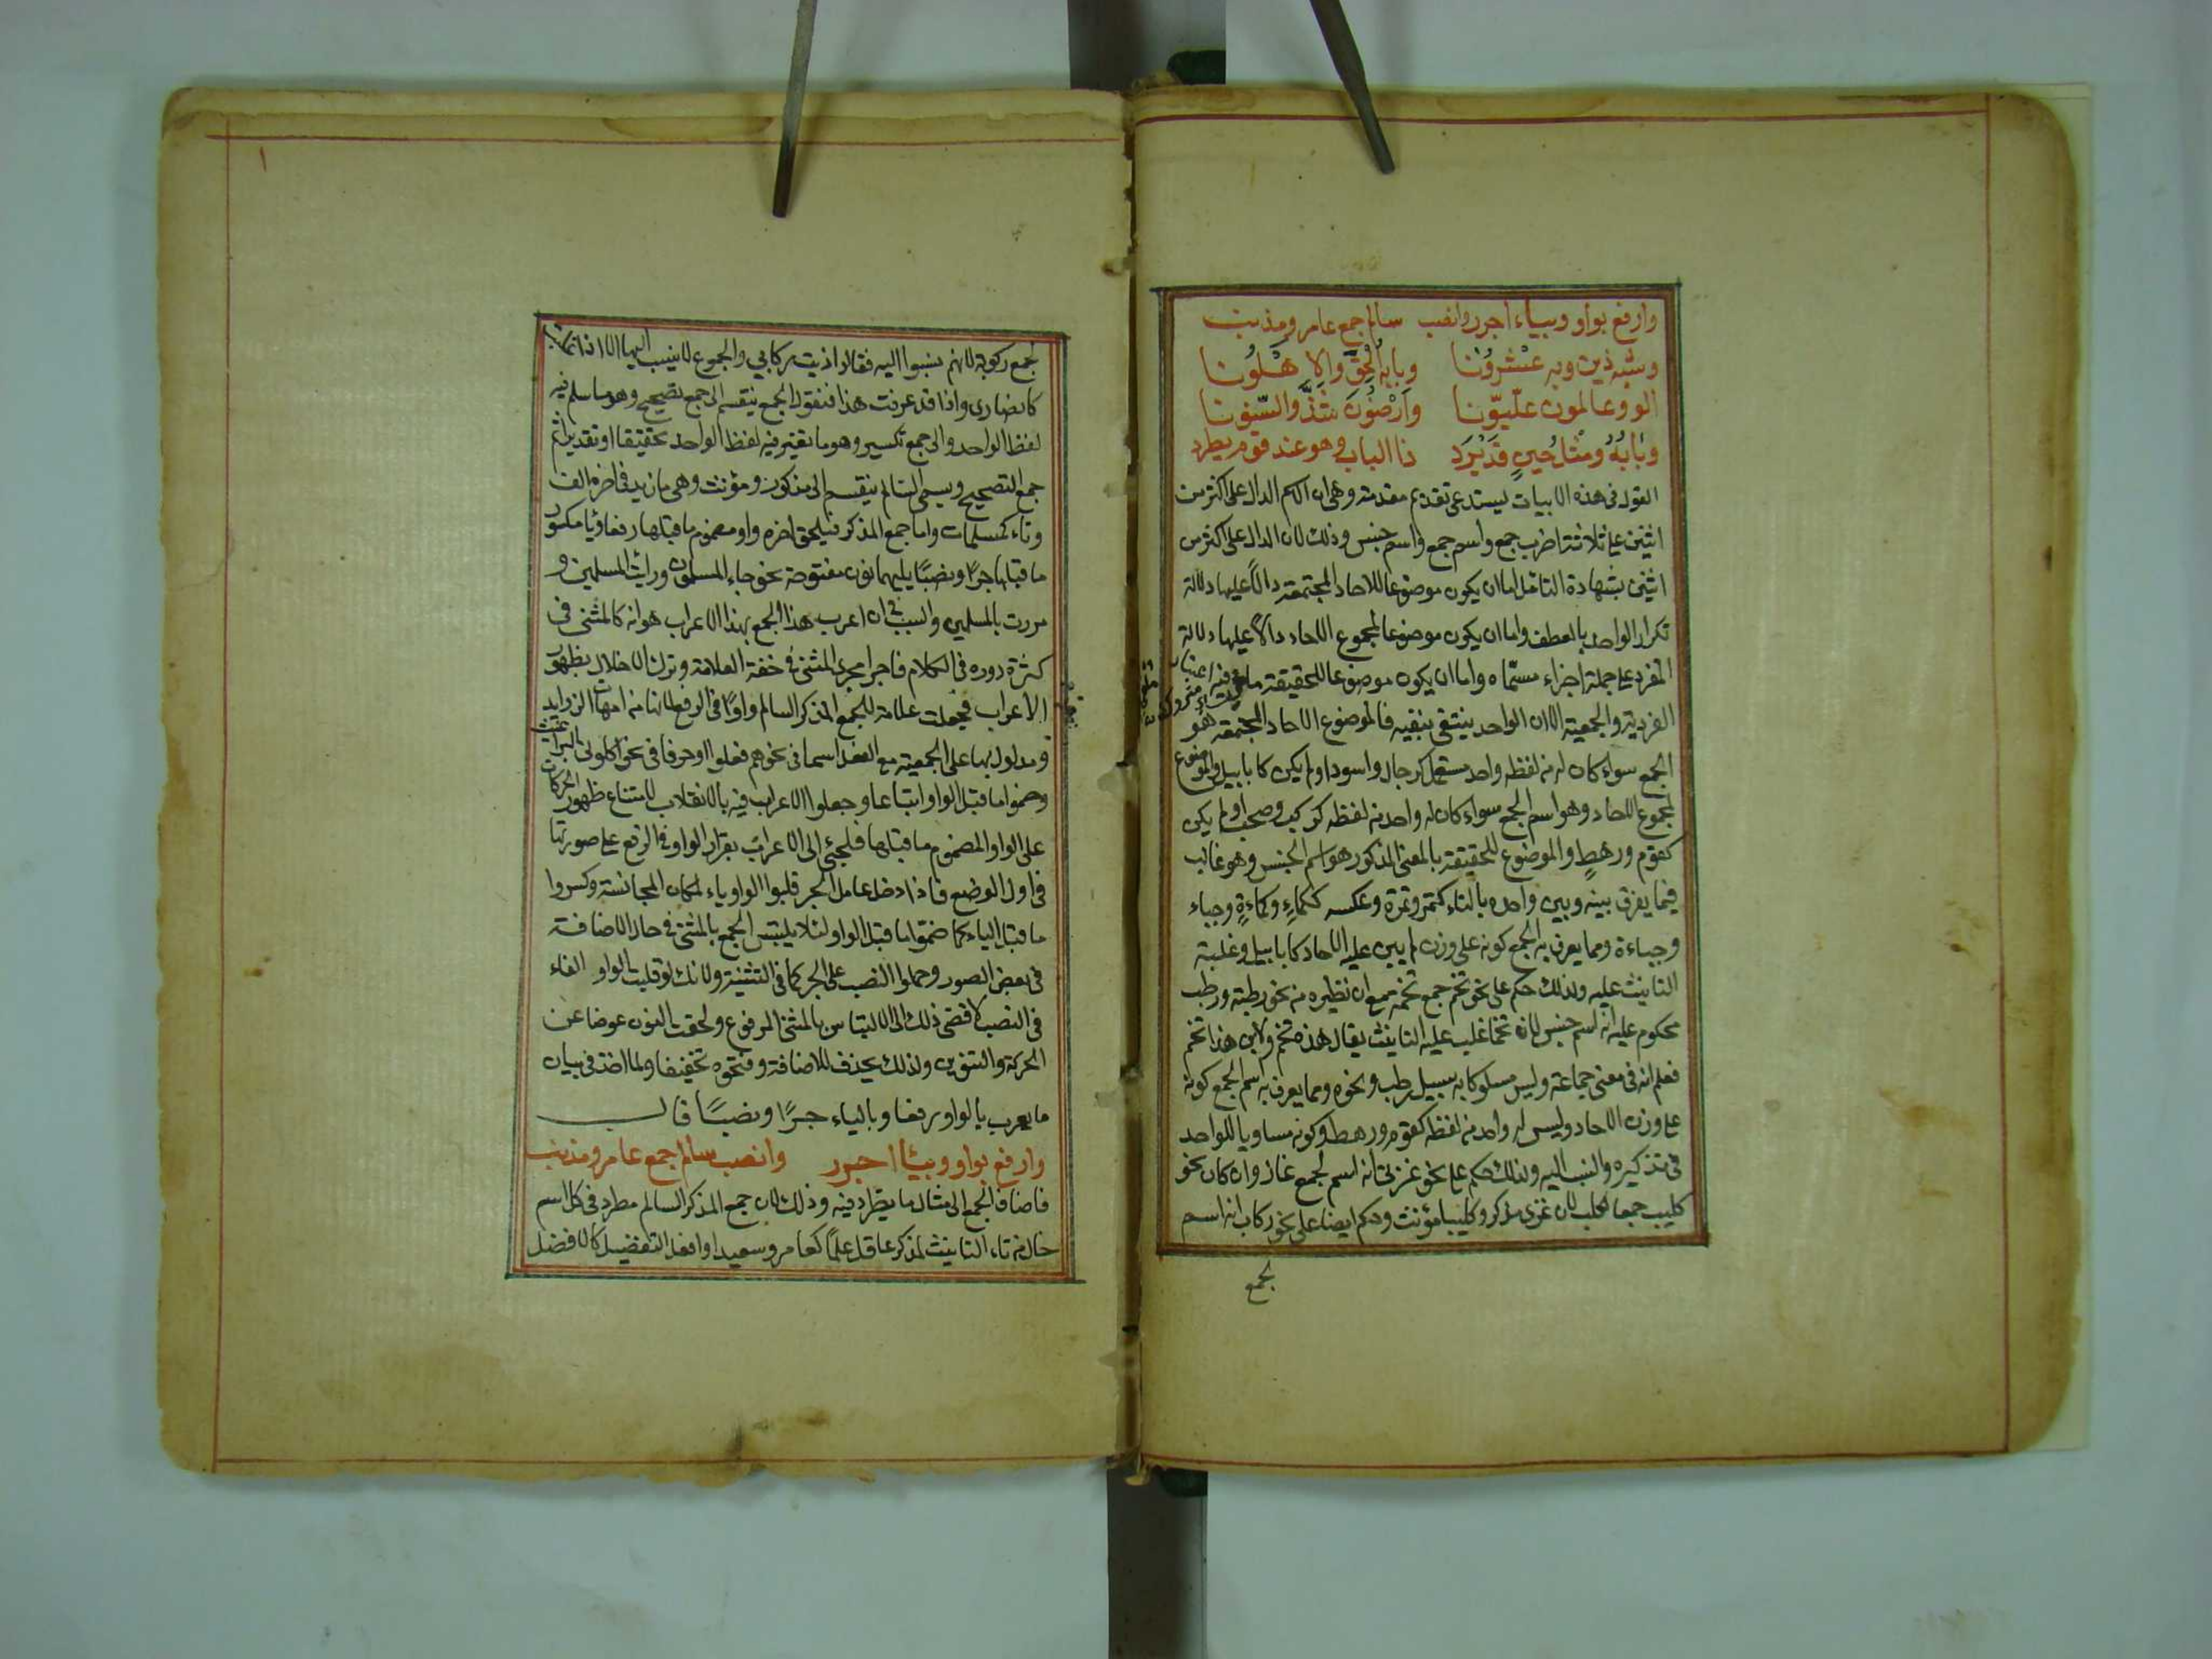 وارفع بواو وبياء اجرر وانصب سالم جمع عامر ومذنب
وشبه ذين وبه عشرونا وبابه الحق والاهلونا
الو وعالمون علّيّونا وارضون شذّ والسّنونا
وبابه ومثل حين قد يرد ذا الباب وهو عند قوم يطرد
القول فى هذه الابيات يستدعى تقديم مقدمة وهى ان الاسم الدال على اكثر من
اثنين على ثلاثة اضرب جمع واسم جمع واسم جنس وذلك لان الدال على اكثر من
اثنين بشهادة التامل اما ان يكون موضوعا للاحاد المجتمعة دالاً عليها دلالة
تكرار الواحد بالعطف واما ان يكون موضوعا لمجموع الاحاد دالاً عليها دلالة
المفرد على جملة اجزاء مسمّاه واما ان يكون موضوعا للحقيقة ملغى فيه اعتبار
الفردية والجمعية الا ان الواحد ينتفى بنفيه فالموضوع للاحاد المجتمعة هو
الجمع سواء كان له من لفظه واحد مستعمل كرجال واسود او لم يكن كابابيل والموضوع
لمجموع الاحاد وهو اسم الجمع سواء كان له واحد من لفظه كركب وصحب او لم يكن
كقوم ورهط والموضوع للحقيقة بالمعنى المذكور هو اسم الجنس وهو غالب
فيما يفرق بينه وبين واحده بالتاء كتمر وتمرة وعكسه ككماءٍ وكماءةٍ وجباء
وجباءة ومما يعرف به الجمع كونه على وزن لم يبن عليه الاحاد كابابيل وغلبة
التانيث عليه ولذلك حكم على نحو تخم جمع تخمة مع ان نظيره من نحو رطبة ورطب
محكوم عليه انه اسم جنس لان تخما غلب عليه التانيث يقال هذه تخم ولا هذا تخم
فعلم انه فى معنى جماعة وليس مسلوكا به سبيل رطب ونحوه ومما يعرف به اسم الجمع كونه
على وزن الاحاد وليس له واحد من لفظه كقوم ورهط وكونه مساويا للواحد
فى تذكيره والنسب اليه ولذلك حكم على نحو غزى انه اسم لجمع غاز وان كان نحو
كليب جمعا لكلب لان غزى مذكر وكليبا مؤنث وحكم ايضا على نحو ركاب انه اسم
لجمع
لجمع ركوبة لانهم نسبوا اليه فقالوا زيت ركابي والجموع لا ينسب اليها الا اذا
كانصارى واذا قد عرفت هذا فنقول الجمع ينقسم الى جمع تصحيح وهو ما سلم فيه
لفظ الواحد والى جمع تكسير وهو ما تغير فيه لفظ الواحد تحقيقا او تقديرا ثم
جمع التصحيح ويسمى السالم ينقسم الى مذكر ومؤنث وهى ما زيد فى اخره الف
وتاء كمسلمات واما جمع المذكر فيلحق اخره واو مضموم ما قبلها رفعا وياء مكسور
ما قبلها جرًا ونصبًا يليهما نون مفتوحة نحو جاء المسلمون ورايت المسلمين و
مررت بالمسلمين والسبب فى ان اعرب هذا الجمع بهذا الاعراب هو انه كالمثنى فى
كثرة دوره فى الكلام فاجرا مجرى المثنى فى خفة العلامة وترك الاخلال بظهور
الاعراب فجعلت علامة للجمع المذكر السالم واوًا فى الرفع لانها من امهات الزوايد
ومدلول بها على الجمعية مع الفعل اسما فى نحو هم فعلوا وحرفا فى نحو اكلونى البراغيث
وضموا ما قبل الواو اتباعا وجعلوا الاعراب فيه بالانقلاب لامتناع ظهور الحركات
على الواو المضموم ما قبلها فلجئ الى الاعراب بقرار الواو فى الرفع على صورتها
فى اول الوضع فاذا دخل عامل الجر قلبوا الواو ياء لمكان المجانسة وكسروا
ما قبل الياء كما ضموا ما قبل الواو لئلا يلتبس الجمع بالمثنى فى حال الاضافة
فى بعض الصور وحملوا النصب على الجر كما فى التثنية ولانك لو قلبت الواو الفاء
فى النصب لافضى ذلك الى الالتباس بالمثنى المرفوع ولحقت النون عوضا عن
الحركة والتنوين ولذلك يحذف للاضافة وفتحوه تخفيفا ولما اخذ فى بيان
ما يعرب بالواو رفعا وبالياء جرًا ونصبًا قال
وارفع بواو وبيا اجرر وانصب سالم جمع عامر ومذنب
فاضاف الجمع الى مثال ما يطرد فيه وذلك لان جمع المذكر السالم مطرد فى كل اسم
خال من تاء التانيث لمذكر عاقل علمًا كعامر وسعيد او افعل التفضيل كالافضل